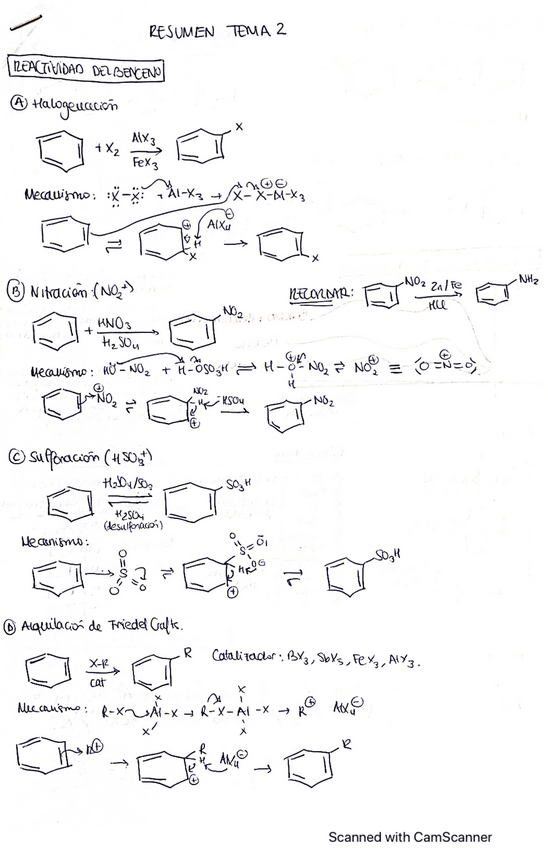 RESUMEN TEMA 2
REACTIVIDAD DEL BENCENO
Ⓐ Halogenación
+ X₂ AlX₃ FeX₃ X
Mecanismo: :X–X: + Al–X₃ → X–X–Al–X₃ ⊕ ⊖
⇌ ⊕ H X AlX₄ ⊖ → X
Ⓑ Nitración: (NO₂⁺)
RECORDAR: NO₂ Zn/Fe HCl NH₂
+ HNO₃ H₂SO₄ NO₂
Mecanismo: HO–NO₂ + H–OSO₃H ⇌ H–O–NO₂ ⇌ NO₂⊕ ≡ (O=N=O)
H
NO₂ ⊕ ⇌ NO₂ H ⊕ HSO₄ → NO₂
Ⓒ Sulfonación (HSO₃⁺)
H₂SO₄/SO₃ SO₃H
H₂SO₄
(desulfonación)
Mecanismo:
O S O O ⇌ O S O H O ⊖ ⊕ ⇌ SO₃H
Ⓓ Alquilación de Friedel Crafts.
X–R cat R Catalizador: BX₃, SbX₅, FeX₃, AlX₃.
Mecanismo: R–X Al–X → R–X–Al–X → R⊕ AlX₄⊖
R⊕ → R H ⊕ AlX₄⊖ → R
Scanned with CamScanner